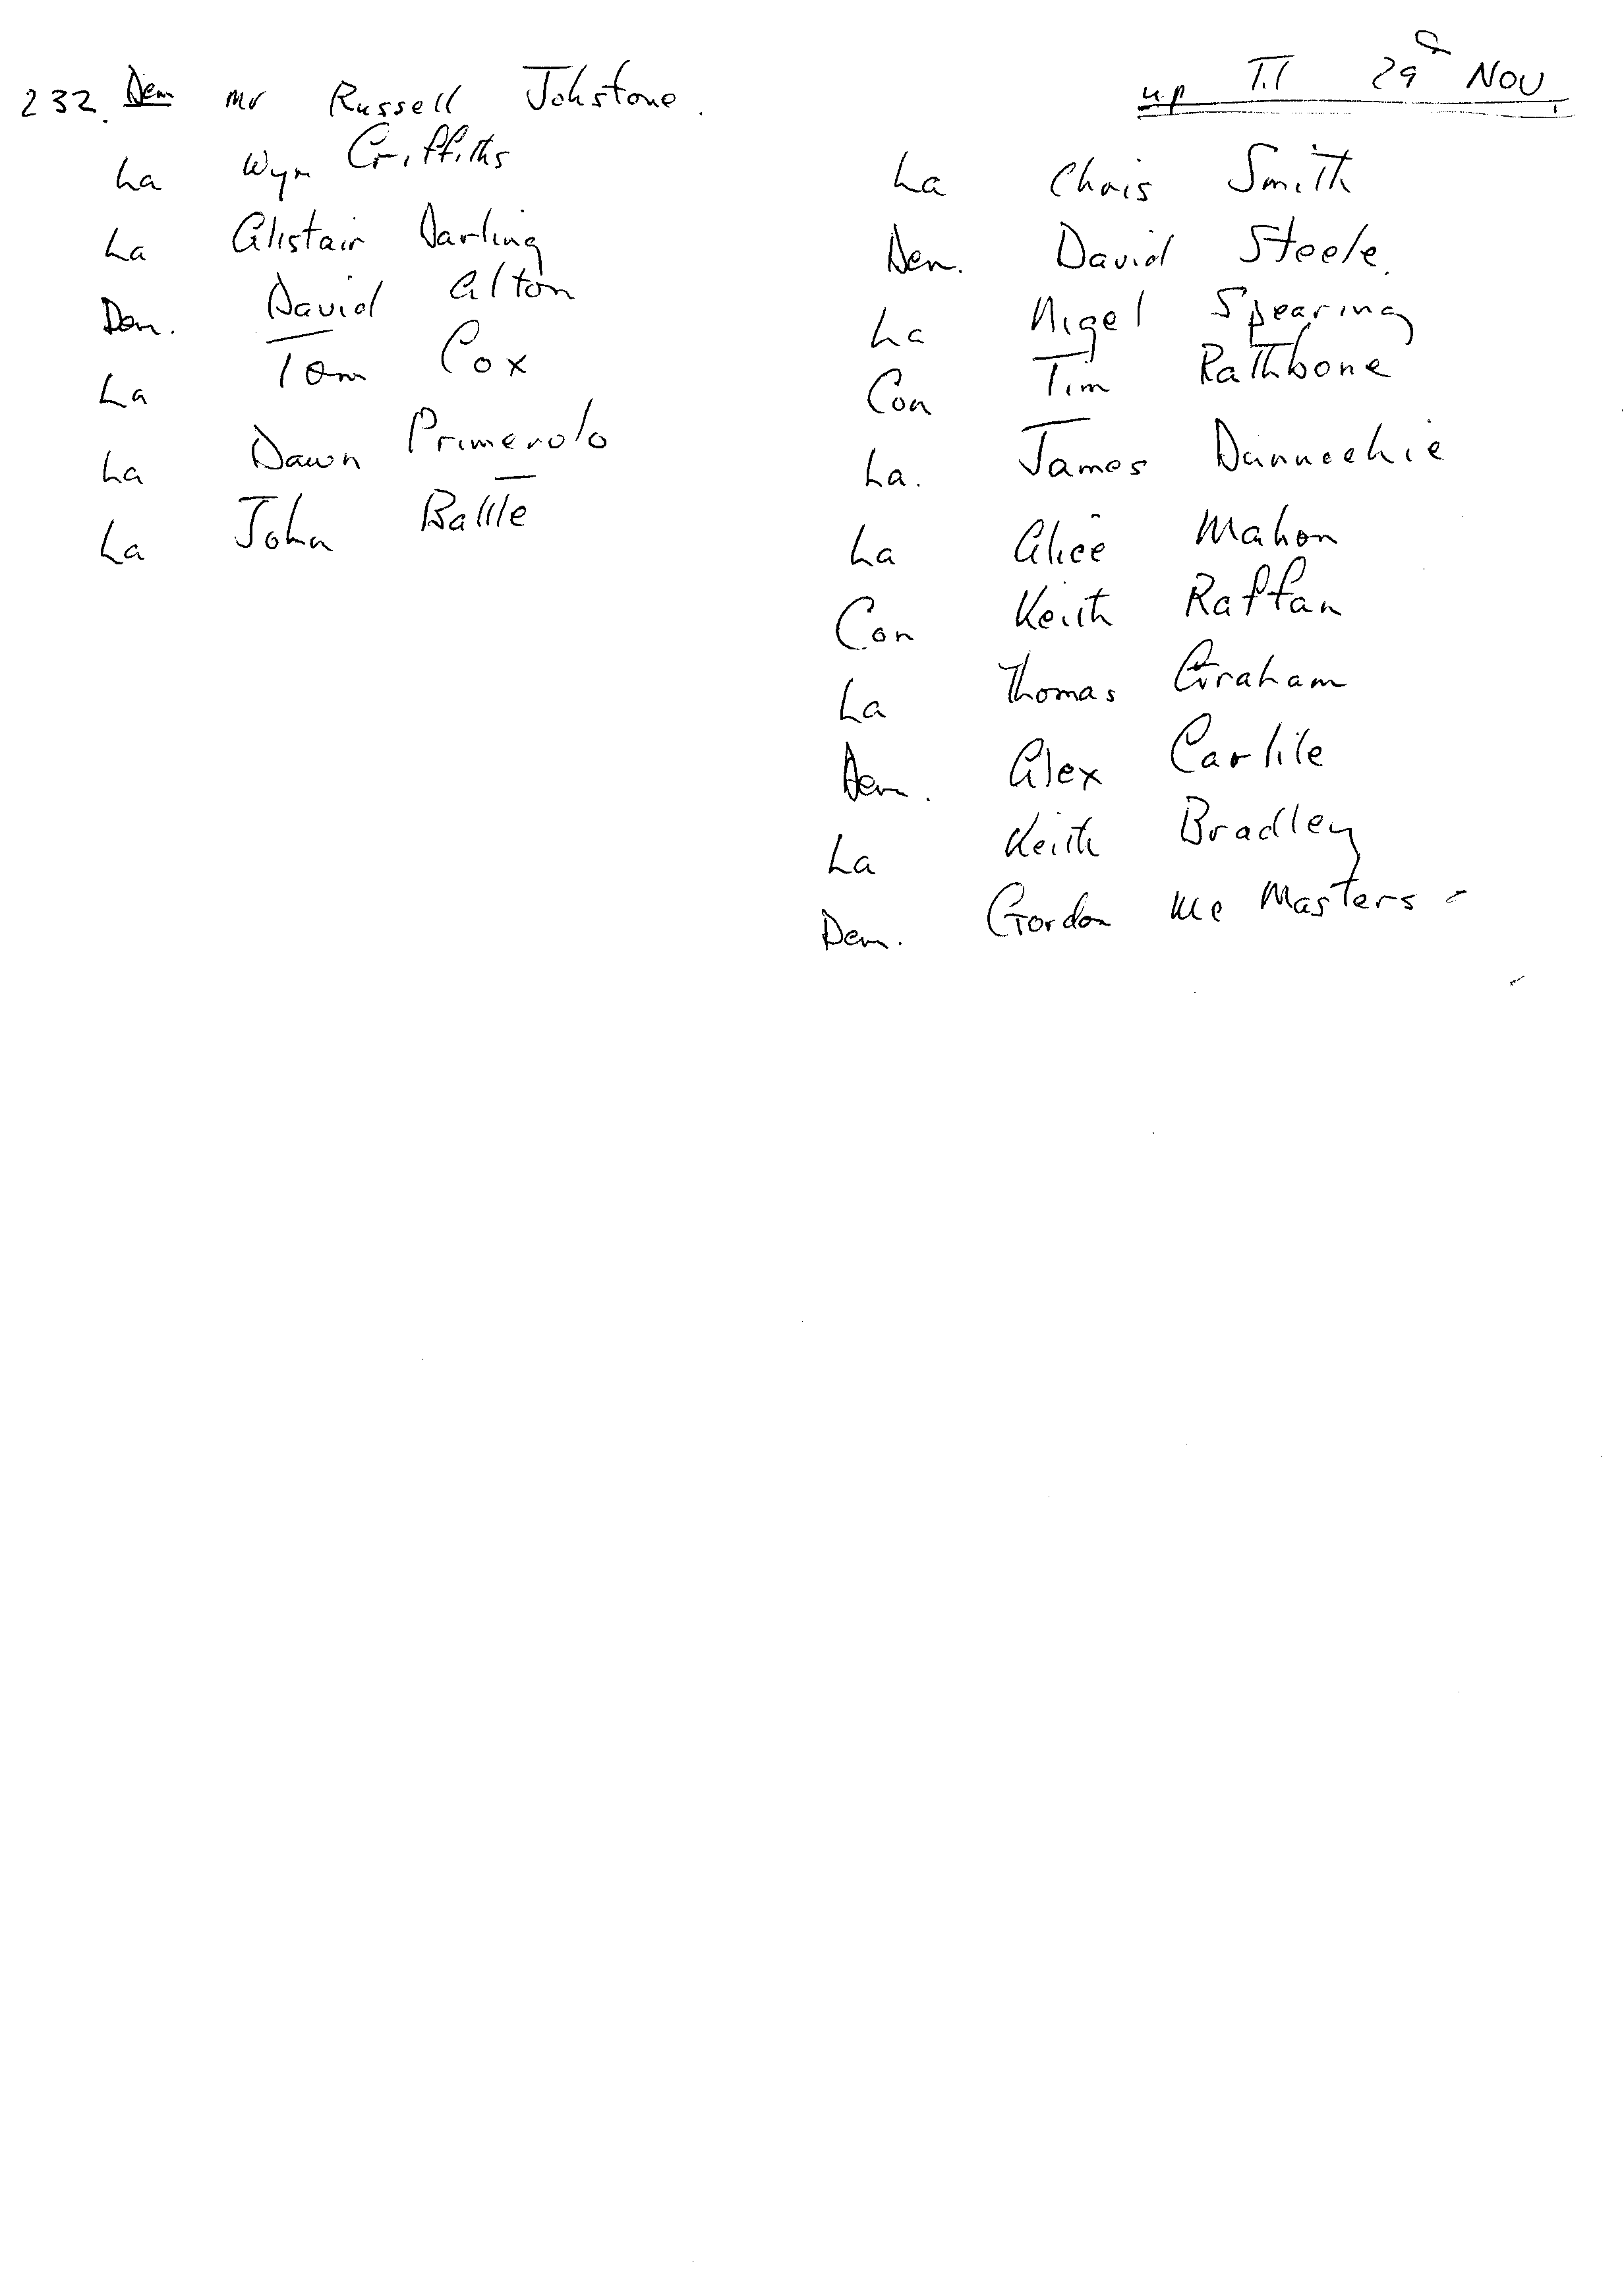 232. Dem Mr Russell Johstone.
La Wyn Griffiths
La Alistair Darling
Dem. David Alton
La Tom Cox
La Dawn Primerolo
La John Battle
up Til 29th NOV.
La Chris Smith
Dem. David Steele.
La Nigel Spearing
Con Tim Rathbone
La. James Dunnechie
La Alice Mahon
Con Keith Raffan
La Thomas Graham
Dem. Alex Carlile
La Keith Bradley
Dem. Gordon Mc Masters -